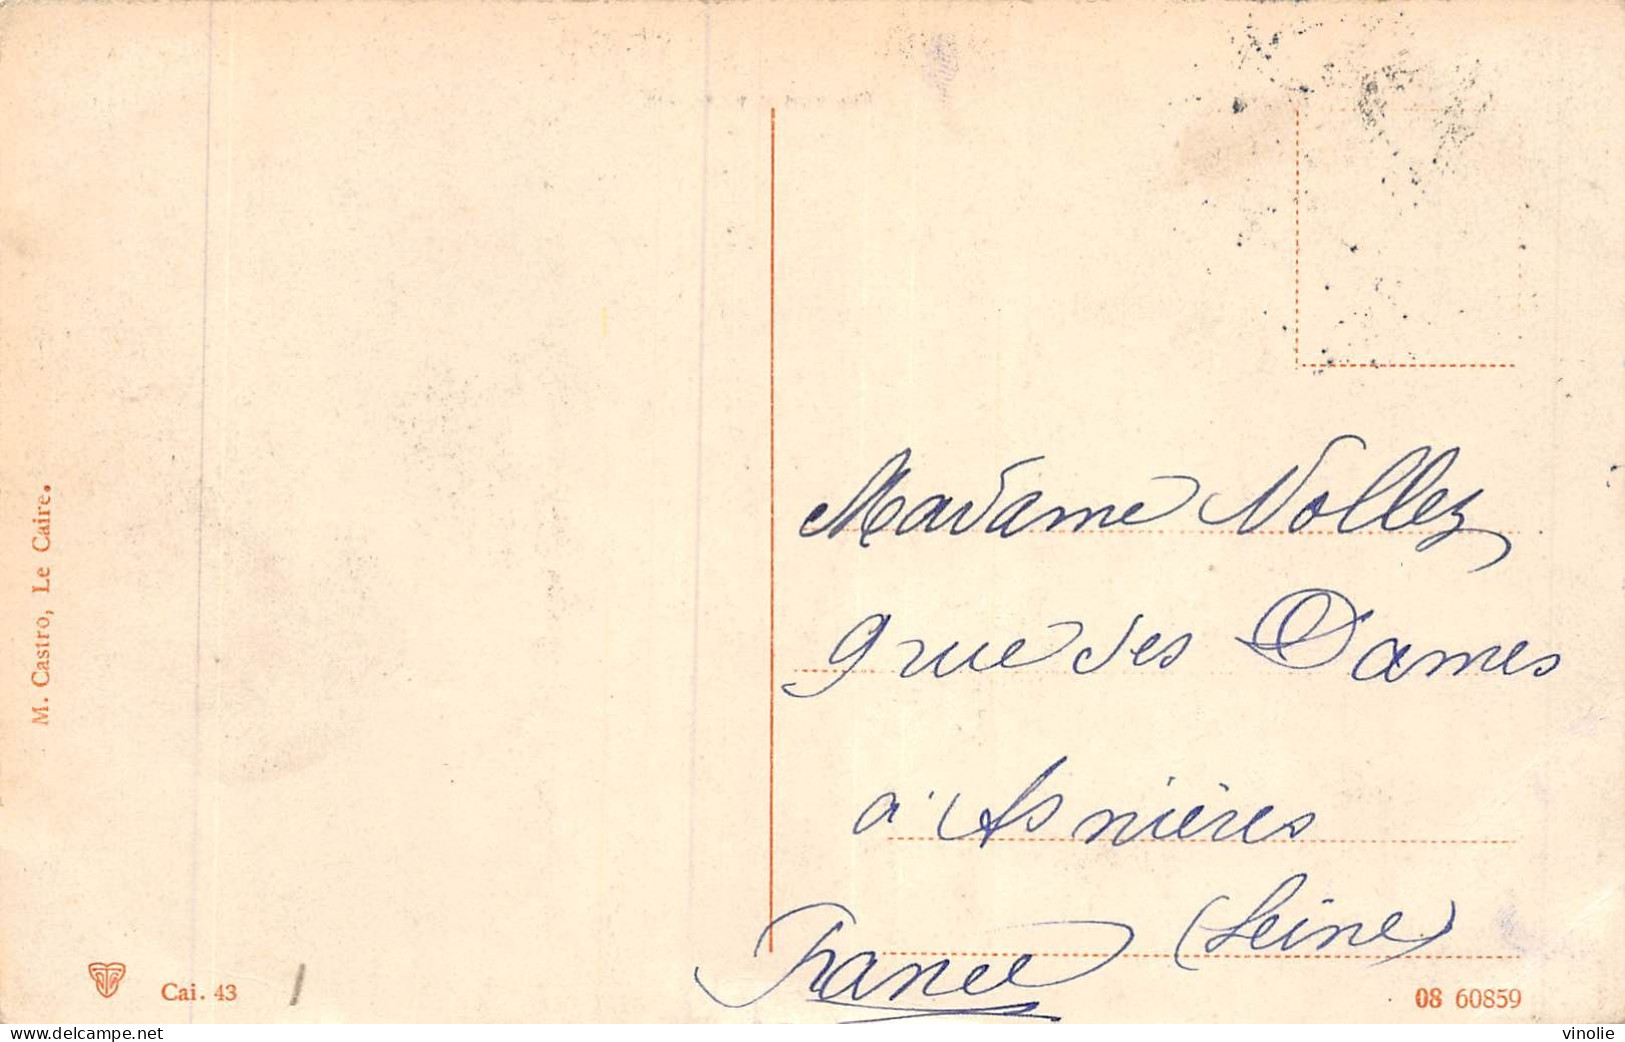 M. Castro, Le Caire.
Madame Nollez
9 rue des Dames
à Asnières
(Seine)
France
Cai. 43
08 60859
www.delcampe.net
vinolie